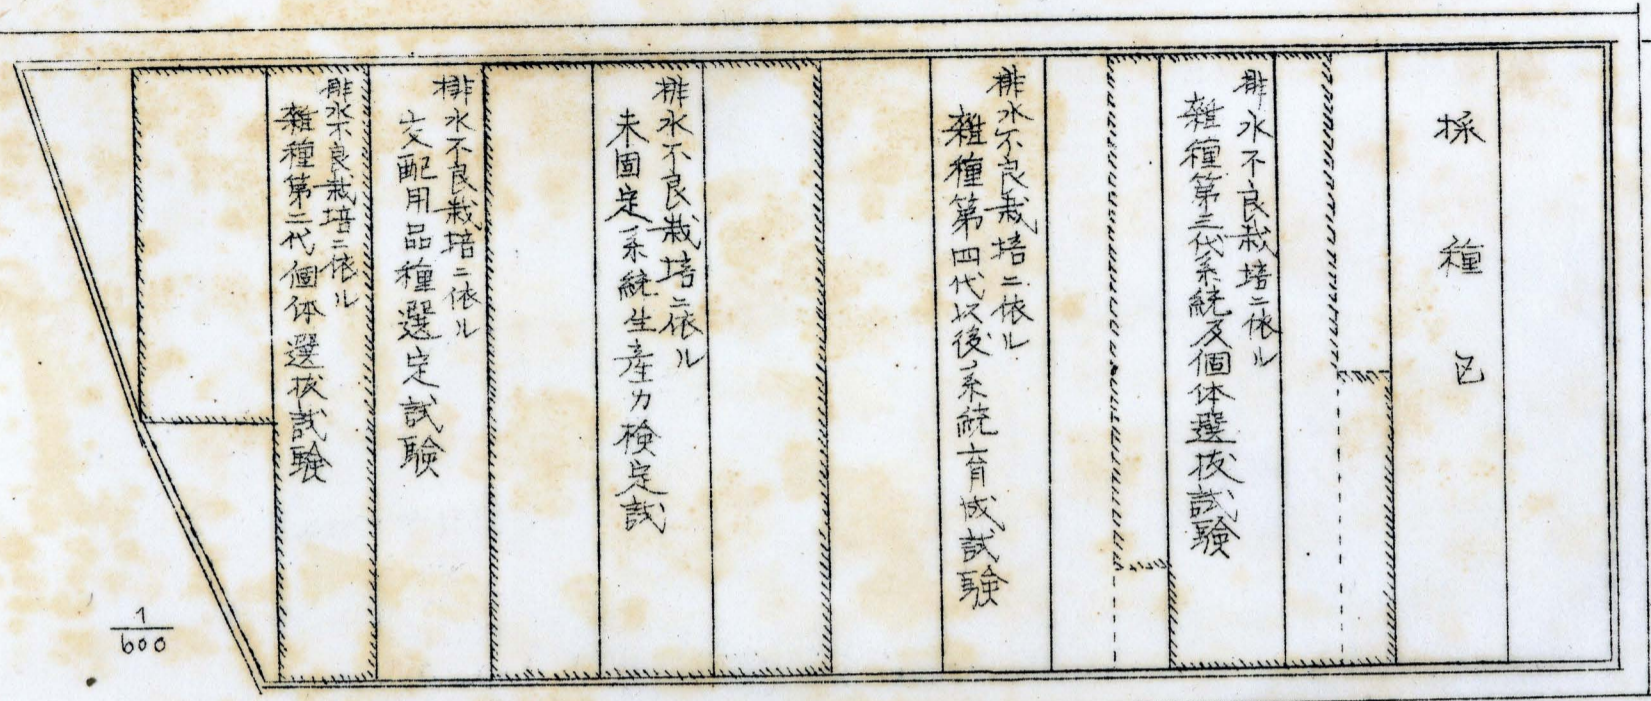 採種区
排水不良栽培ニ依ル
雑種第三代系統及個体選抜試験
排水不良栽培ニ依ル
雑種第四代以後ノ系統育成試験
排水不良栽培ニ依ル
未固定系統生産力検定試
排水不良栽培ニ依ル
交配用品種選定試験
排水不良栽培ニ依ル
雑種第二代個体選抜試験
1/600